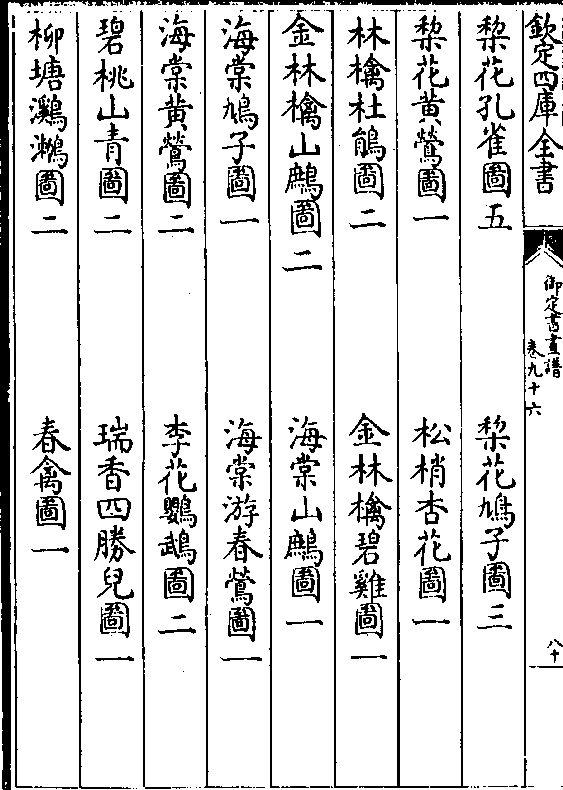 欽定四庫全書
御定書畫譜
卷九十六
八十
梨花孔雀圖五　梨花鳩子圖三
梨花黄鶯圖一　松梢杏花圖一
林檎杜鵑圖二　金林檎碧雞圖一
金林檎山鷓圖二　海棠山鷓圖一
海棠鳩子圖一　海棠游春鶯圖一
海棠黄鶯圖二　李花鸚鵡圖二
碧桃山青圖二　瑞香四勝兒圖一
柳塘鸂𪆟圖二　春禽圖一